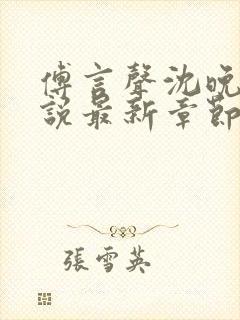 傅言聲沈晚
說最新章節
張雪英